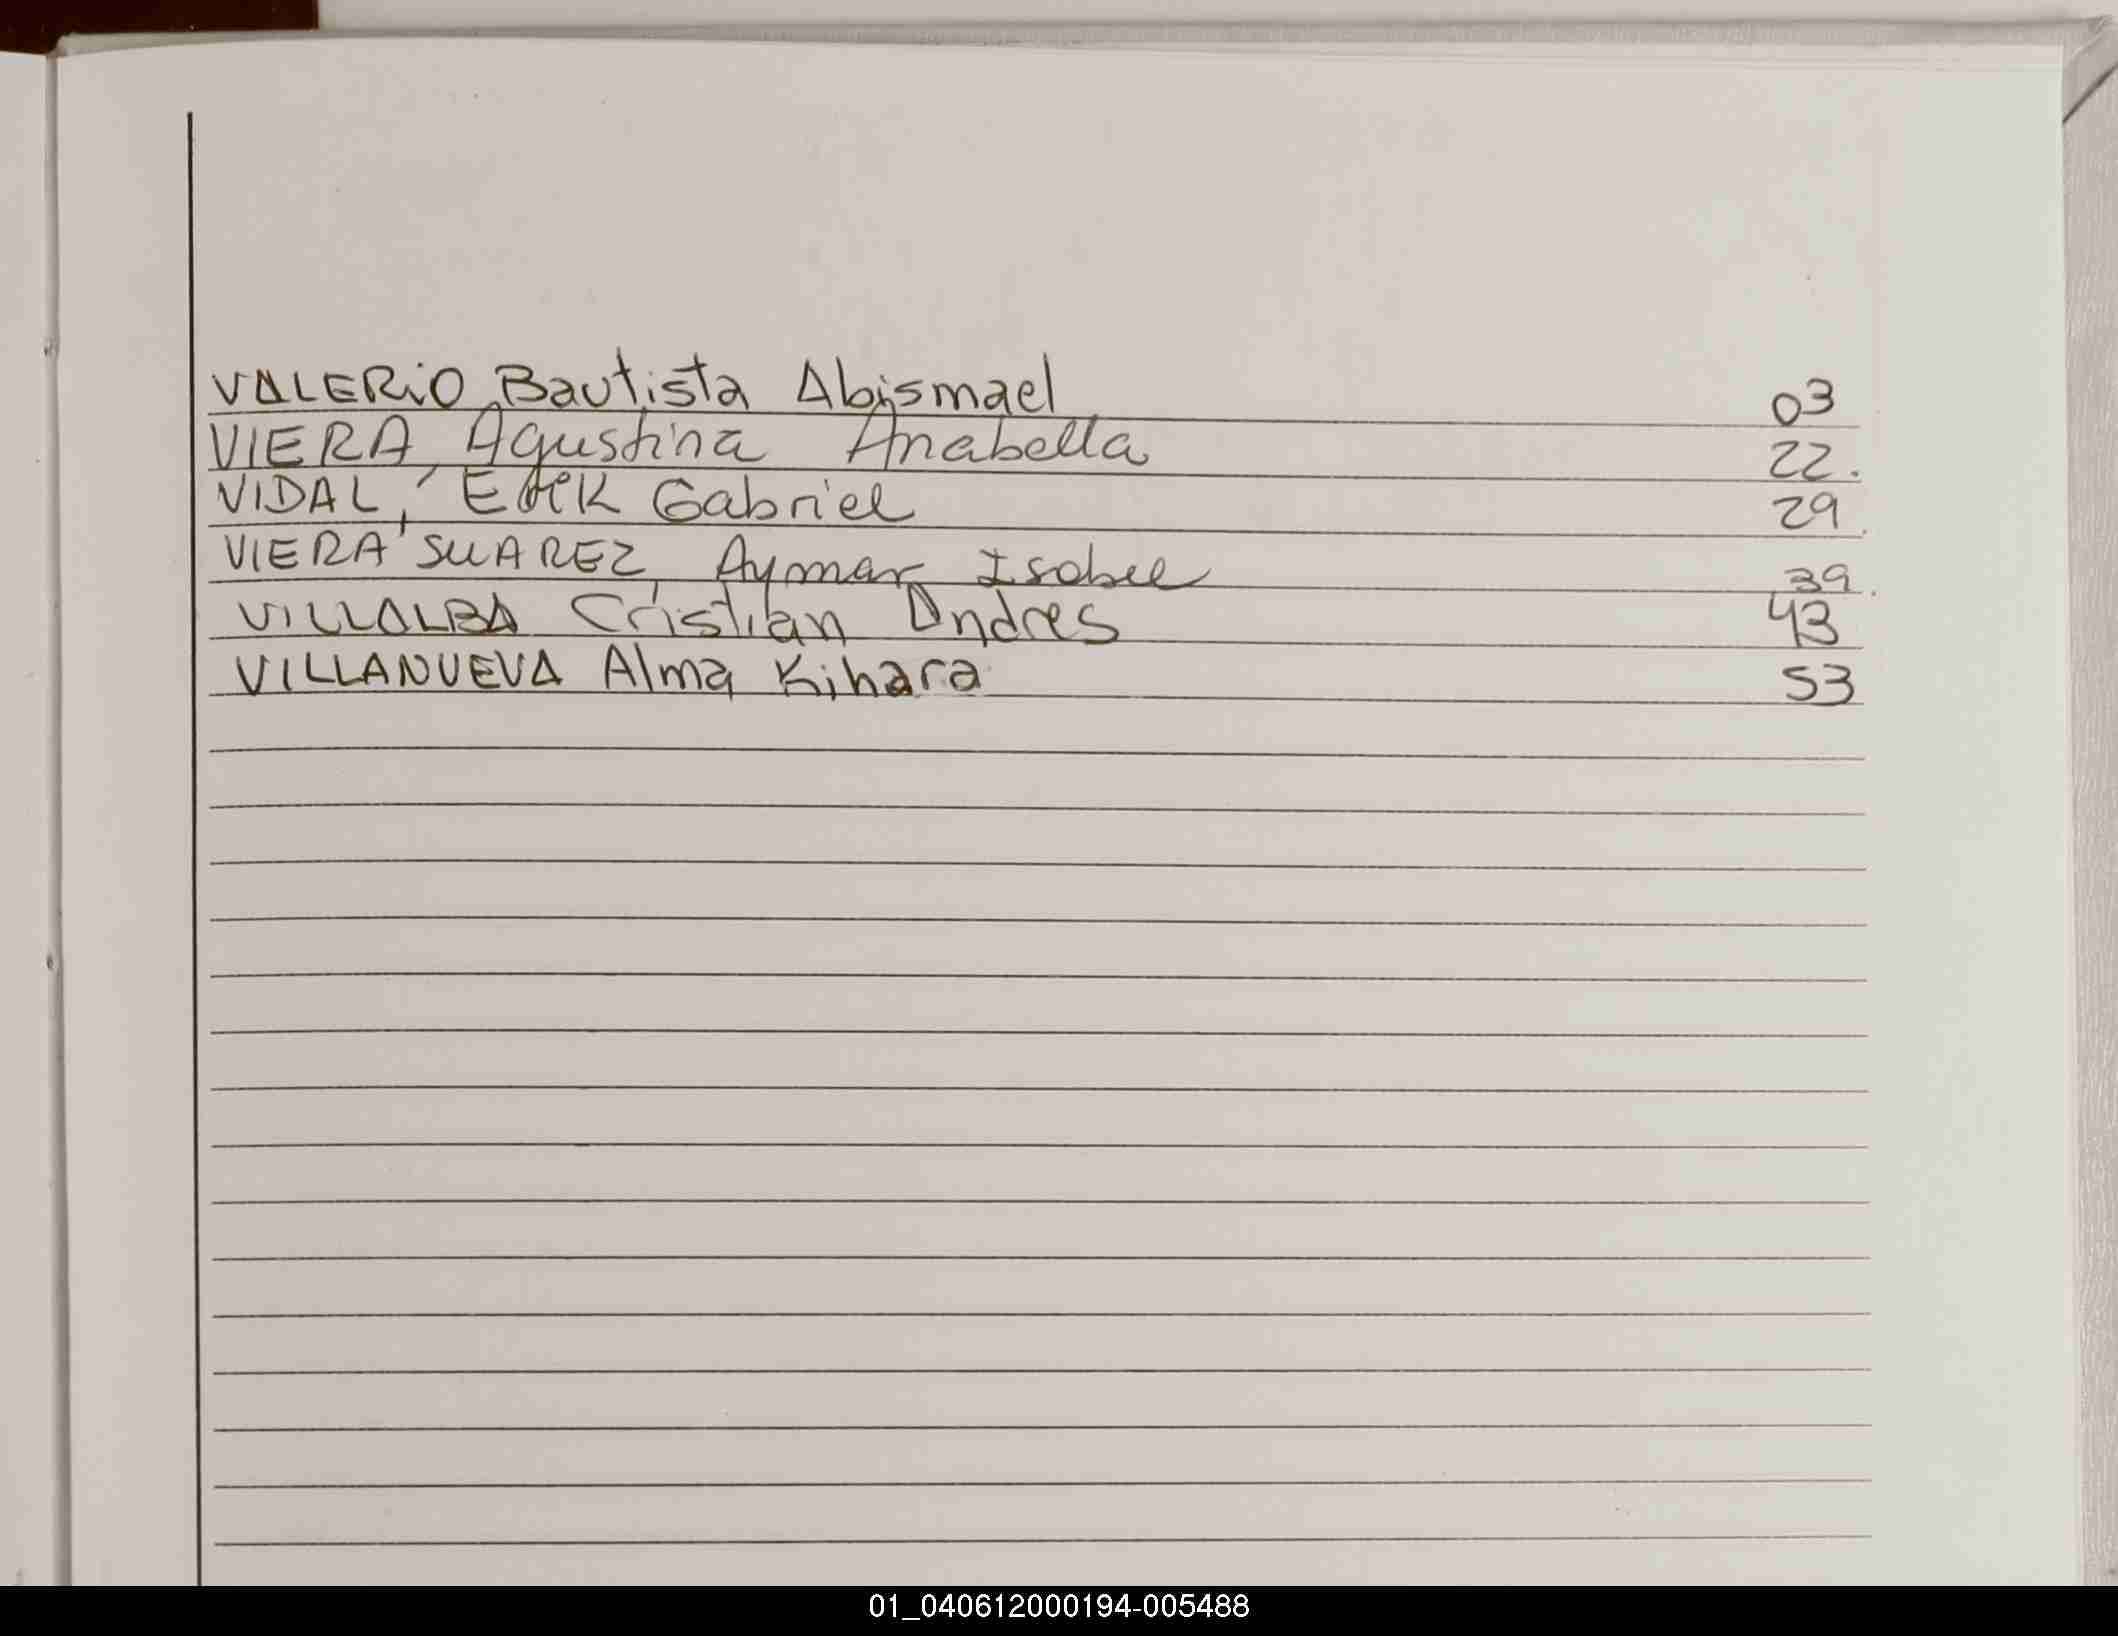 VALERiO Bautista Abismael 03
VIERA, Agustina Anabella 22.
VIDAL, Erik Gabriel 29.
VIERA SUAREZ, Aymar Isabel 39.
VILLALBA Cristian Andres 43
VILLANUEVA Alma Kihara 53
01_040612000194-005488